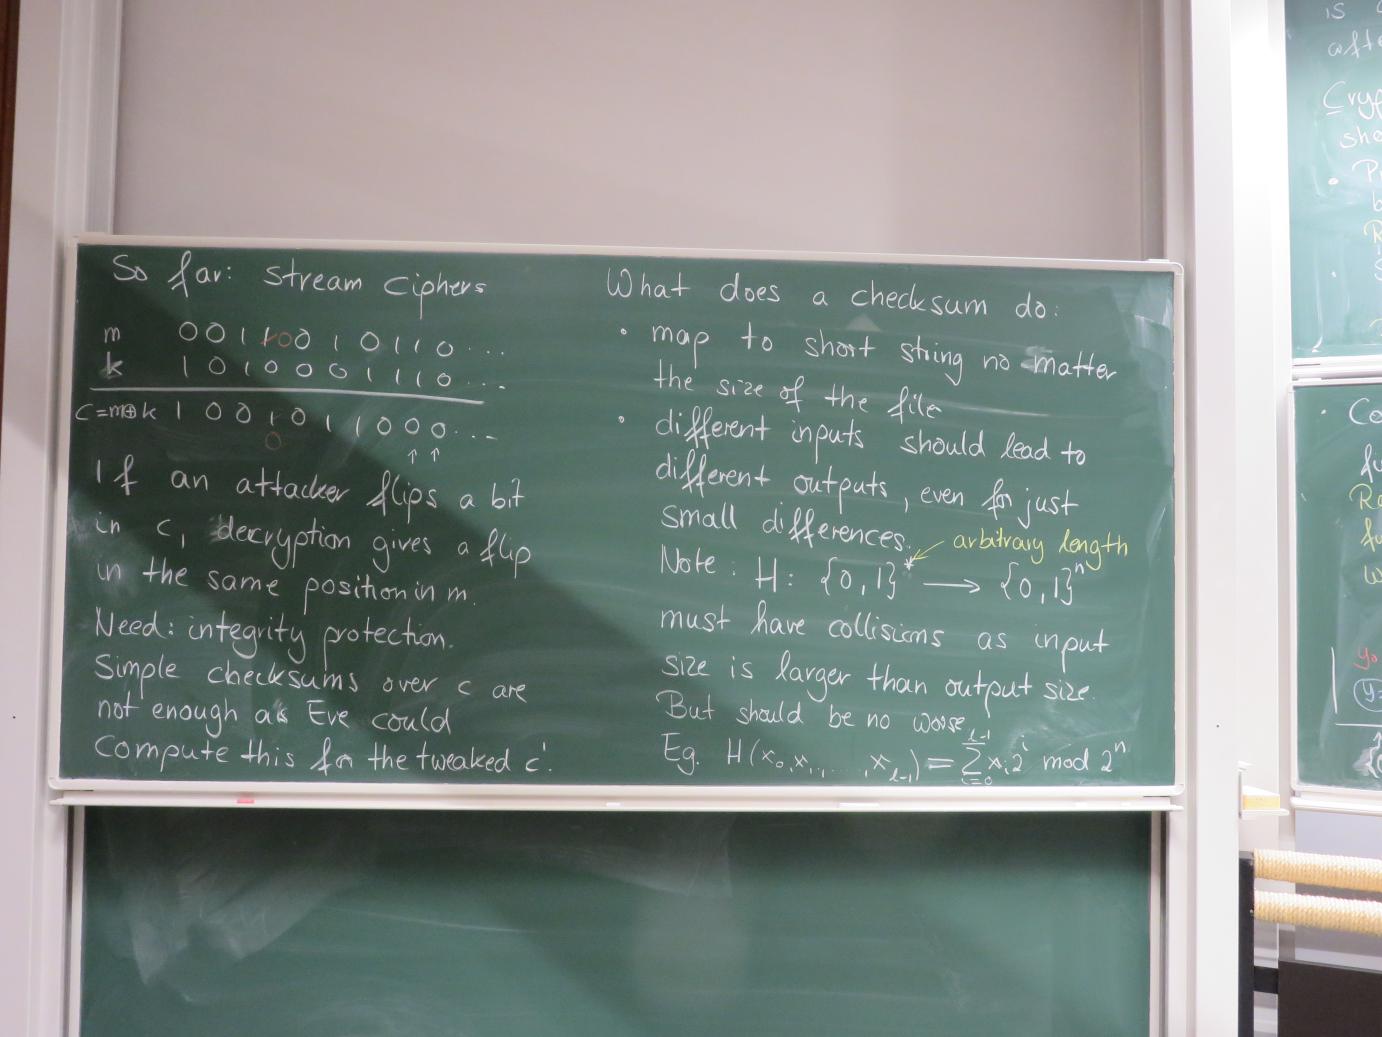 So far: stream ciphers
m 0 0 1 1 0 0 1 0 1 1 0 ...
k 1 0 1 0 0 0 1 1 1 0 ...
c=m⊕k 1 0 0 1 0 1 1 0 0 0 ...
0
↑ ↑
If an attacker flips a bit
in c, decryption gives a flip
in the same position in m.
Need: integrity protection.
Simple checksums over c are
not enough as Eve could
compute this for the tweaked c'.
What does a checksum do:
• map to short string no matter
the size of the file
• different inputs should lead to
different outputs, even for just
small differences.
arbitrary length
Note: H: {0,1}* ⟶ {0,1}ⁿ
must have collisions as input
size is larger than output size.
But should be no worse.
Eg. H(x₀,x₁,...,x_{l-1}) = ∑_{i=0}^{l-1} xᵢ2ⁱ mod 2ⁿ
is
• Co